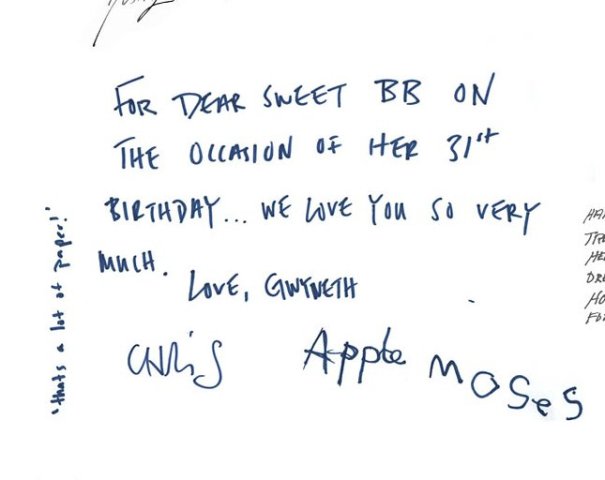 FOR DEAR SWEET BB ON
THE OCCASION OF HER 31st
BIRTHDAY... WE LOVE YOU SO VERY
MUCH.
LOVE, GWYNETH
CHRIS
Apple MOSeS
"thats a lot of paper!"